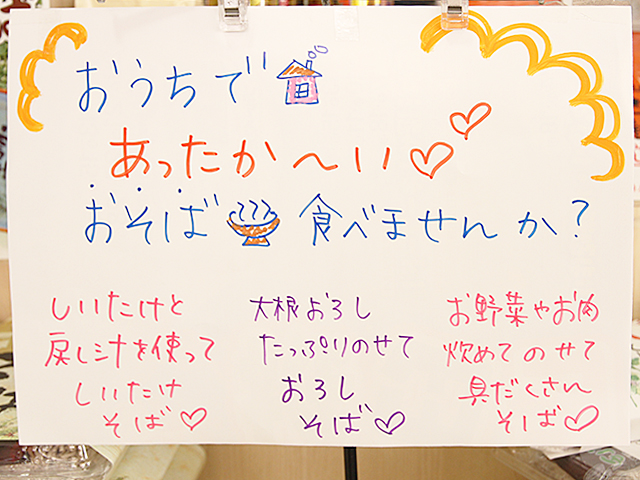 おうちで
あったか～い♡♡
おそば 食べませんか？
しいたけと
戻し汁を使って
しいたけ
そば♡
大根おろし
たっぷりのせて
おろし
そば♡
お野菜やお肉
炊めてのせて
具だくさん
そば♡